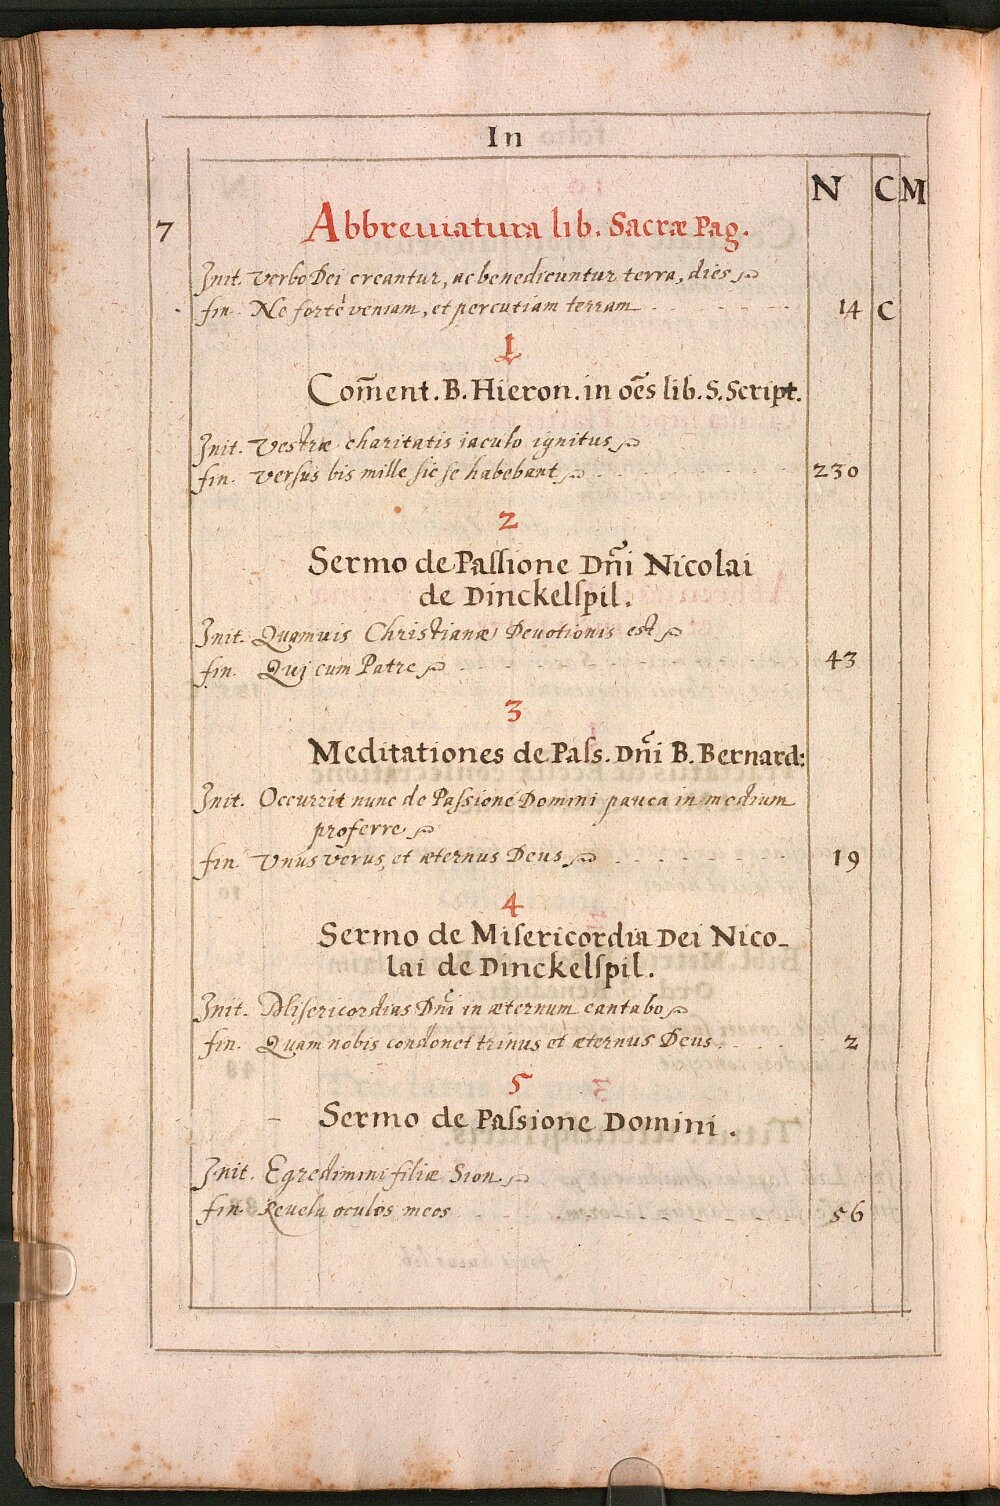 In
N C M
7 Abbreuiatura lib. Sacræ Pag.
Init. Verbo Dei creantur, ac benedicuntur terra, dies
fin. Ne fortè veniam, et percutiam terram 14 C
1
Com̃ent. B. Hieron. in oẽs lib. S. Script.
Init. Vestræ charitatis iaculo ignitus
fin. Versus bis mille sic se habebant 230
2
Sermo de Paſſione Dñi Nicolai
de Dinckelſpil.
Init. Quamuis Christianæ Deuotionis est
fin. Qui cum Patre 43
3
Meditationes de Paſs. Dñi B. Bernard:
Init. Occurrit nunc de Paſsione Domini pauca in medium
proferre
fin. Vnus verus, et æternus Deus 19
4
Sermo de Miſericordia Dei Nico-
lai de Dinckelſpil.
Init. Miſericordias Dñi in æternum cantabo
fin. Quam nobis condonet trinus et æternus Deus 2
5
Sermo de Paſsione Domini.
Init. Egredimini filiæ Sion
fin. Reuela oculos meos 56